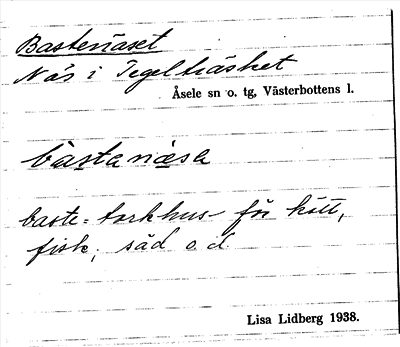 Bastenäset
Näs i Tegelträsket
Åsele sn o. tg, Västerbottens l.
bàstanæsa
baste = torkhus för kött,
fisk, säd o.d.
Lisa Lidberg 1938.